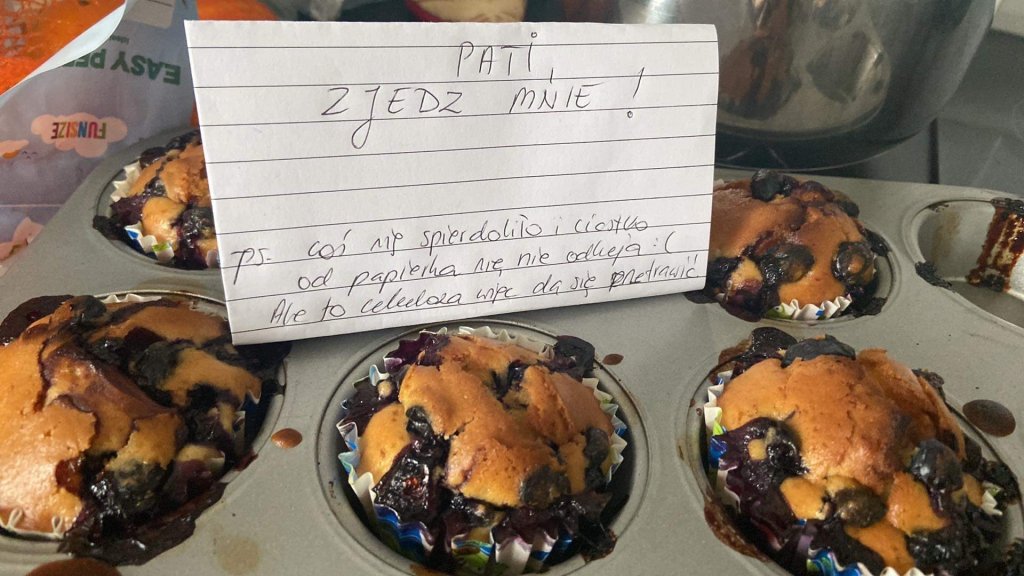 EASY PE
FUNSIZE
PATI,
ZJEDZ MNIE!
PS. coś się spierdoliło i ciastko
od papierka się nie odkleja :(
Ale to celuloza więc da się przetrawić